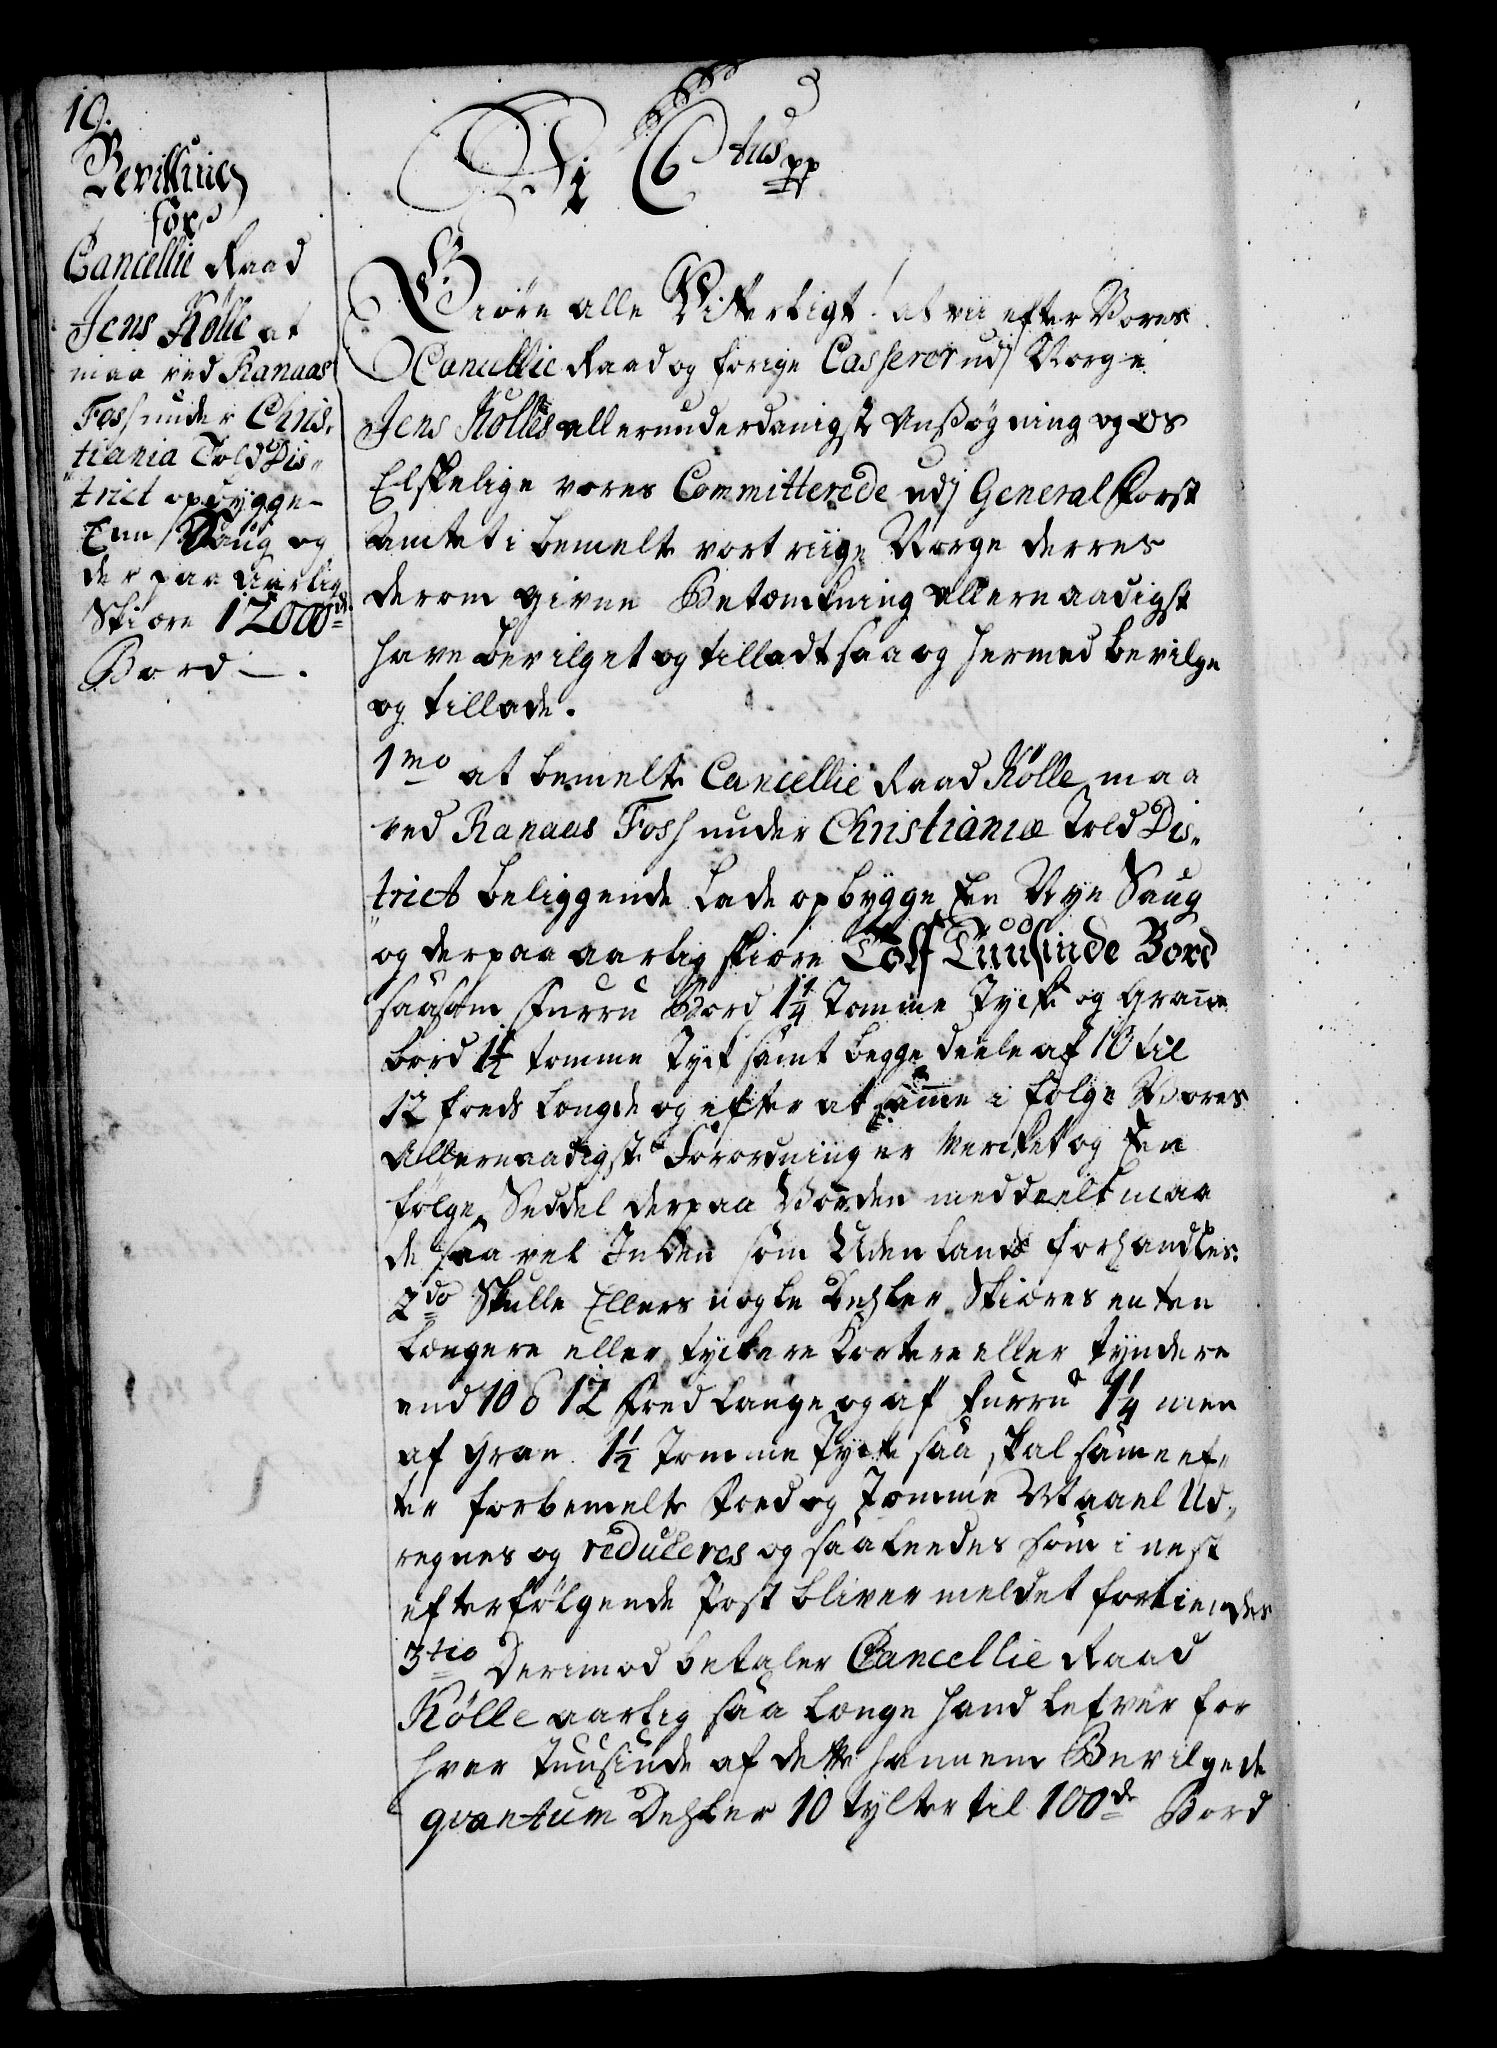 10.
Bevilling
for
Cancellie Raad
Jens Kølle at
maa ved Ranaas
Foss under Chris-
tiania Told Dis-
trict opbygge
Een Saug og
der paa Aarlig
Skiære 12000de
Bord.
Vi C6tus pp
Giøre alle Vitterligt! at vii efter Vores
Cancellie Raad og forige Casserer udj Norge
Jens Kølles allerunderdanigste Ansøgning og os
Elskelige vores Committerede udj General Forst
Amtet i bemelte vort riige Norge derres
derom givne Betænkning Allernaadigst
have bevilget og tilladt saa og hermed bevilge
og tillade.
1mo at bemelte Cancellie Raad Kølle maa
ved Ranaas Foss under Christianiæ Told Dis-
trict beliggende lade opbygge Een Nye Saug
og derpaa aarlig skiære Tolf Tuusinde Bord
saasom Furru Bord 1¼ Tomme Tyck og Grane
bord 1½ tomme Tyck samt begge deele af 10 til
12 foeds længde og efter at samme i følge Vores
Allernaadigste Forordning er Mercket og Een
følge Seddel derpaa Vorden meddeelt maa
de saa vel Inden som Uden lands forhandles.
2do Skulle Ellers nogle Dehler Skiæres enten
længere eller tyckere Kortere eller tyndere
end 10 à 12 foed lange og af furru 1¼ men
af Gran 1½ Tomme Tyck saa skal samme ef-
ter forbemelte foed og Tomme Maael Ud-
regnes og reduceres og saaleedes som i nest
efterfølgende Post bliver meldet fortiendes
3tio Derimod betaler Cancellie Raad
Kølle aarlig saa længe hand lefver for
hver Tuusinde af dette hannem Bevilgede
qvantum Dehler 10 tylter til 100de Bord